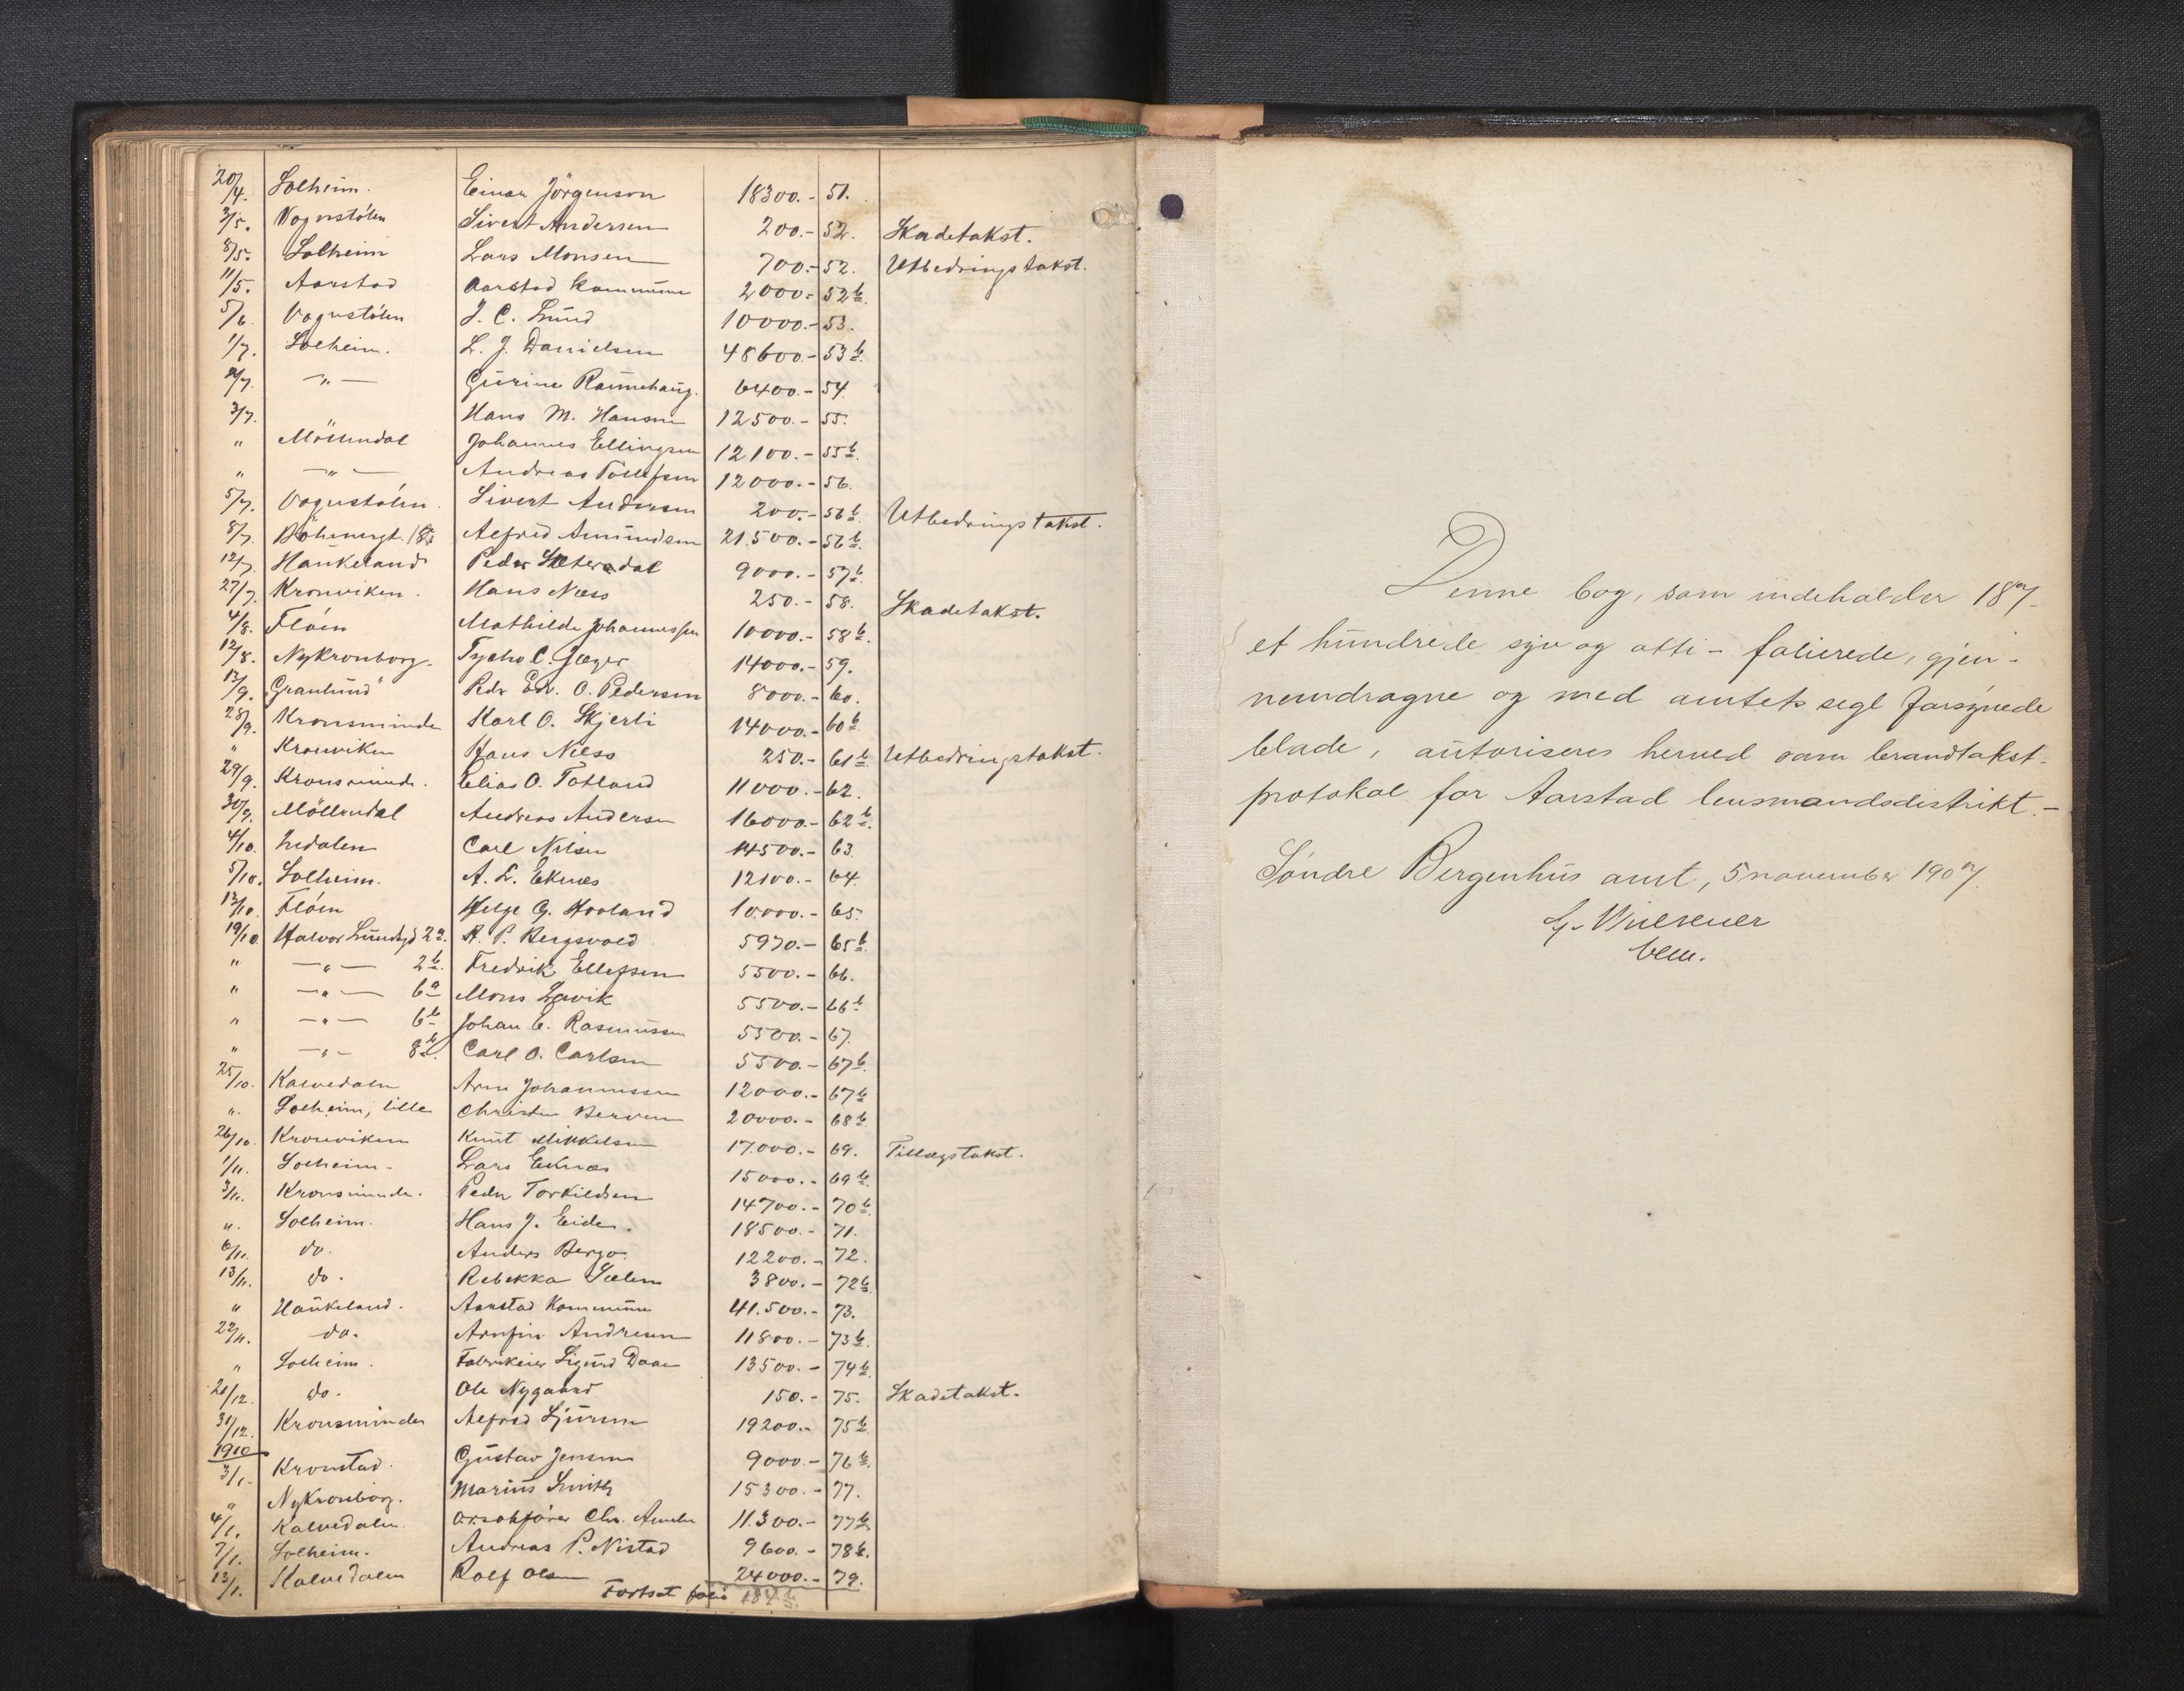 20/4. Solheim. Einar Jörgenson 18300.- 51.
3/5. Vognstölen Sivert Andersen 200.- 52. Skadetakst.
8/5. Solheim Lars Monsen 700.- 52. Utbedringstakst.
11/5. Aarstad Aarstad kommune 2000.- 52b.
5/6. Vognstölen J. C. Lund 10000.- 53.
1/7. Solheim. L. J. Danielsen 48600.- 53b.
2/7. —„— Gurine Raunehaug. 6400.- 54.
3/7. Hans M. Hansen 12500.- 55.
„ Möllendal Johannes Ellingsen 12100.- 55b.
„ —„— Andreas Tollefsen 12000.- 56.
5/7. Vognstölen. Sivert Andersen 200.- 56b. Utbedringstakst.
8/7. Alfred Amundsen 21.500.- 56b.
12/7. Haukeland Peder 9000.- 57b.
27/7. Kronviken. Hans Næss 250.- 58. Skadetakst.
4/8. Flöen Mathilde Johannessen 10000.- 58b.
12/8. Nykronborg. Tycho C. Jæger 14000.- 59.
13/9. „Granlund" Peder Edv. O. Pedersen 8000.- 60.
28/9. Kronsminde Karl O. Skjerli 14000.- 60b
„ Kronviken Hans Næss 250.- 61b. Utbedringstakst.
29/9. Kronsminde. Elias O. Totland 11000.- 62.
30/9. Möllendal Andreas Andersen 16000.- 62b.
4/10. Carl Nilsen 14500.- 63.
5/10. Solheim. A. L. Eknes 12100.- 64.
13/10. Flöen Helge G. Hovland 10.000.- 65.
19/10. Halvor Lundsgd 2a. R. P. Bergsvold 5970.- 65b
„ —„— 2b. Fredrik Ellefsen 5500.- 66.
„ —„— 6a Mons Lavik 5500.- 66b
„ —„— 6b Johan E. Rasmussen 5500.- 67.
„ —„— 8b. Carl O. Carlsen 5500.- 67b.
25/10. Kalvedalen Arne Johannessen 12000.- 67b
„. Solheim, lille Christen Berven 20000.- 68b.
26/10. Kronviken Knut Mikkelsen 17.000.- 69. Tillægstakst.
1/11. Solheim. Lars Eknæs 15000.- 69b.
3/11. Kronsminde. Peder Torkildsen 14700.- 70b.
„. Solheim. Hans J. Eide. 18500.- 71.
6/11. do. Anders Bergo. 12200.- 72.
13/11. do. Rebekka Sælen 3800.- 72b.
„ Haukeland. Aarstad Kommune 41.500.- 73.
22/11. do. Arnfin Andresen 11800.- 73b.
„ Solheim. Fabrikeier Sigurd Daae 13500.- 74b.
21/12. do. Ole Nygaard 150.- 75. Skadetakst.
31/12. Kronsminde Alfred Sjursen 19200.- 75b
1910
3/1. Kronstad. Gustav Jensen 9000.- 76b.
„ Nykronborg. Marius Smith 15300.- 77.
4/1. Kalvedalen. Chr. 11.300.- 77b.
7/1. Solheim. Andreas P. Nistad 9600.- 78b.
13/1. Kalvedalen Rolf Olsen 24000.- 79.
Fortsat folio 184b.
Denne bog, som indeholder 187-
et hundrede syv og otti - folierede, gjen-
nemdragne og med amtets segl forsynede
blade, autoriseres herved som brandtakst-
protokol for Aarstad lensmandsdistrikt.-
Söndre Bergenhus amt, 5 november 1907.